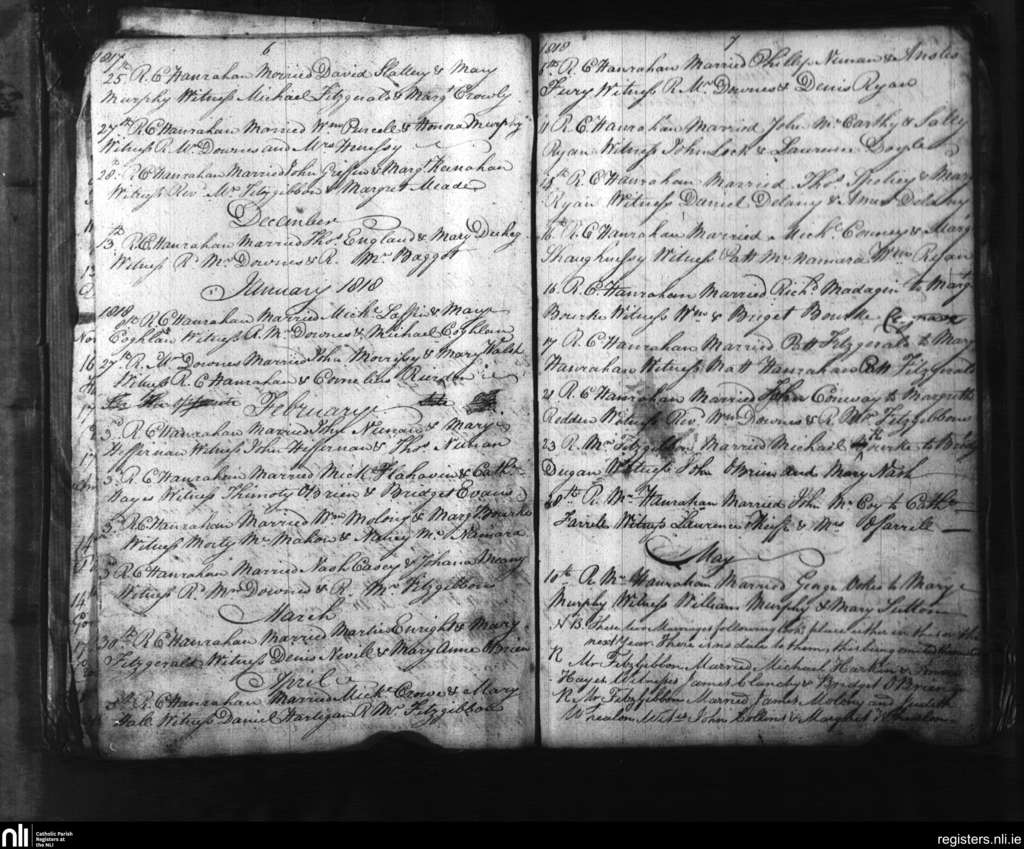 6
1817
25th R. E Hanrahan Married David Slattery & Mary
Murphy Witness Michael Fitzgerald & Margt Crowly
27th R E Hanrahan Married Wm Purcele & Honora Murphy
Witness R. Mr Downes and Mrs
28th R E Hanrahan Married John Griffin & Margt
Witness Revd Mr Fitzgibbon & Margret Meade
December
13th R E Hanrahan Married Thos England & Mary
Witness Rd Mr Downes & R. Mr Baggot
January 1818
1818
R E Hanrahan Married Michl & Mary
Coghlan Witness R. Mr Downes & Michael Coghlan
27th R. Mr Downes Married John Morrissy & Mary Walsh
Witness R. E Hanrahan & Cornelius
February
3rd R E Hanrahan Married & Mary
Heffernan Witness John Heffernan & Thos Nunan
3 R E Hanrahan Married Mick Flahavin & Cathe
Hayes Witness Thimoty O Brien & Bridget Evans
3 R E Hanrahan Married Wm Molony & Margt Bourke
Witness Morty Mc Mahon & Nancy Mc Namara
3 R E Hanrahan Married Nash Casey & Johana
Witness Rd Mr Downes & R. Mr Fitzgibbon
March
30th R E Hanrahan Married Martin Enright & Mary
Fitzgerald Witness Denis Nevile & Mary Anne O Brien
April
R. E Hanrahan Married Mick Crowe & Mary
Witness Daniel Hartigan R Mr Fitzgibbon
7
1818
8th R E Hanrahan Married Phillip Nunan &
Fury Witness R. Mr Downes & Denis Ryan
11 R. E. Hanrahan Married John Mc Carthy & Sally
Ryan Witness John Lock & Laurence Doyle
R. E Hanrahan Married Thos & Mary
Ryan Witness Daniel Delany & Delahny
16 R. E Hanrahan Married Michl Conney & Margt
Shaughnessy Witness Patt Mc Namara Wm Ryan
16 R. E. Hanrahan Married Richd Madagin to Margt
Bourke Witness Wm & Briget Bourke
17 R. E Hanrahan Married Patt Fitzgerald to Mary
Hanrahan Witness Matt Hanrahan Patt Fitzgerald
21 R E Hanrahan Married John Conway to Margrett
Redden Witness Rev. Wm Downes & R Mr Fitzgibbon
23 R. Mr Fitzgibbon Married Michael Bourke to
Dugan Witness John O Brien and Mary Nash
30th R. Mr Hanrahan Married John Mc Coy to Cathe
Farrele Witness Laurence & Mrs O Farrele
May
10th R Mr Hanrahan Married George to Mary
Murphy Witness William Murphy & Mary
N B. These two Marriages following took place either in this or the
next year There is no date to them, this being
R Mr Fitzgibbon Married Michael &
Hayes Witness James Clanchy & Bridget O Brien
R Mr Fitzgibbon Married James Molony and Judith
Whealon Witss John Collins & Margret Whealon
nli
Catholic Parish
Registers at
the NLI
registers.nli.ie